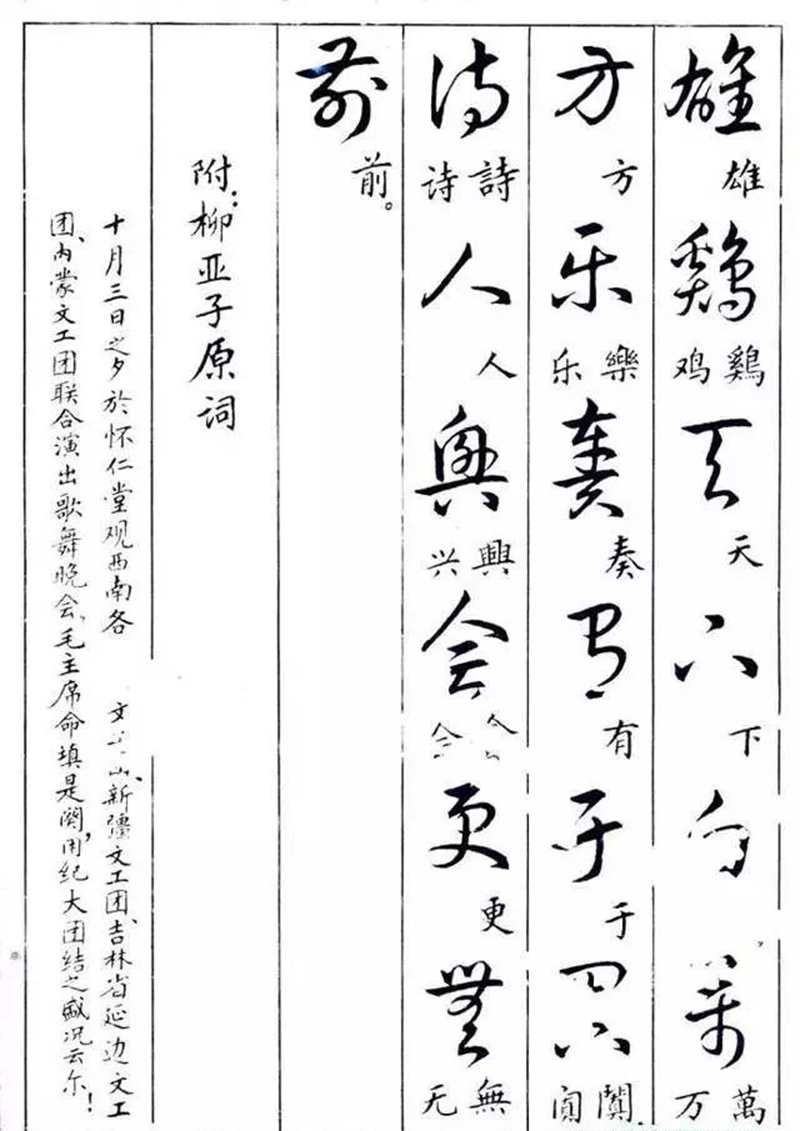 雄 雄 鷄 鷄 鸡 天 天 下 下 白 萬 萬 万
方 方 乐 樂 乐 奏 奏 有 有 于 于 闐 闐
诗 詩 诗 人 人 興 興 兴 会 会 更 更 無 無 无
前 前。
附:柳亚子原词
十月三日之夕於怀仁堂观西南各 文 、新疆文工团、吉林省延边文工
团、内蒙文工团联合演出歌舞晚会、毛主席命填是阕,用纪大团结之盛况云尔!